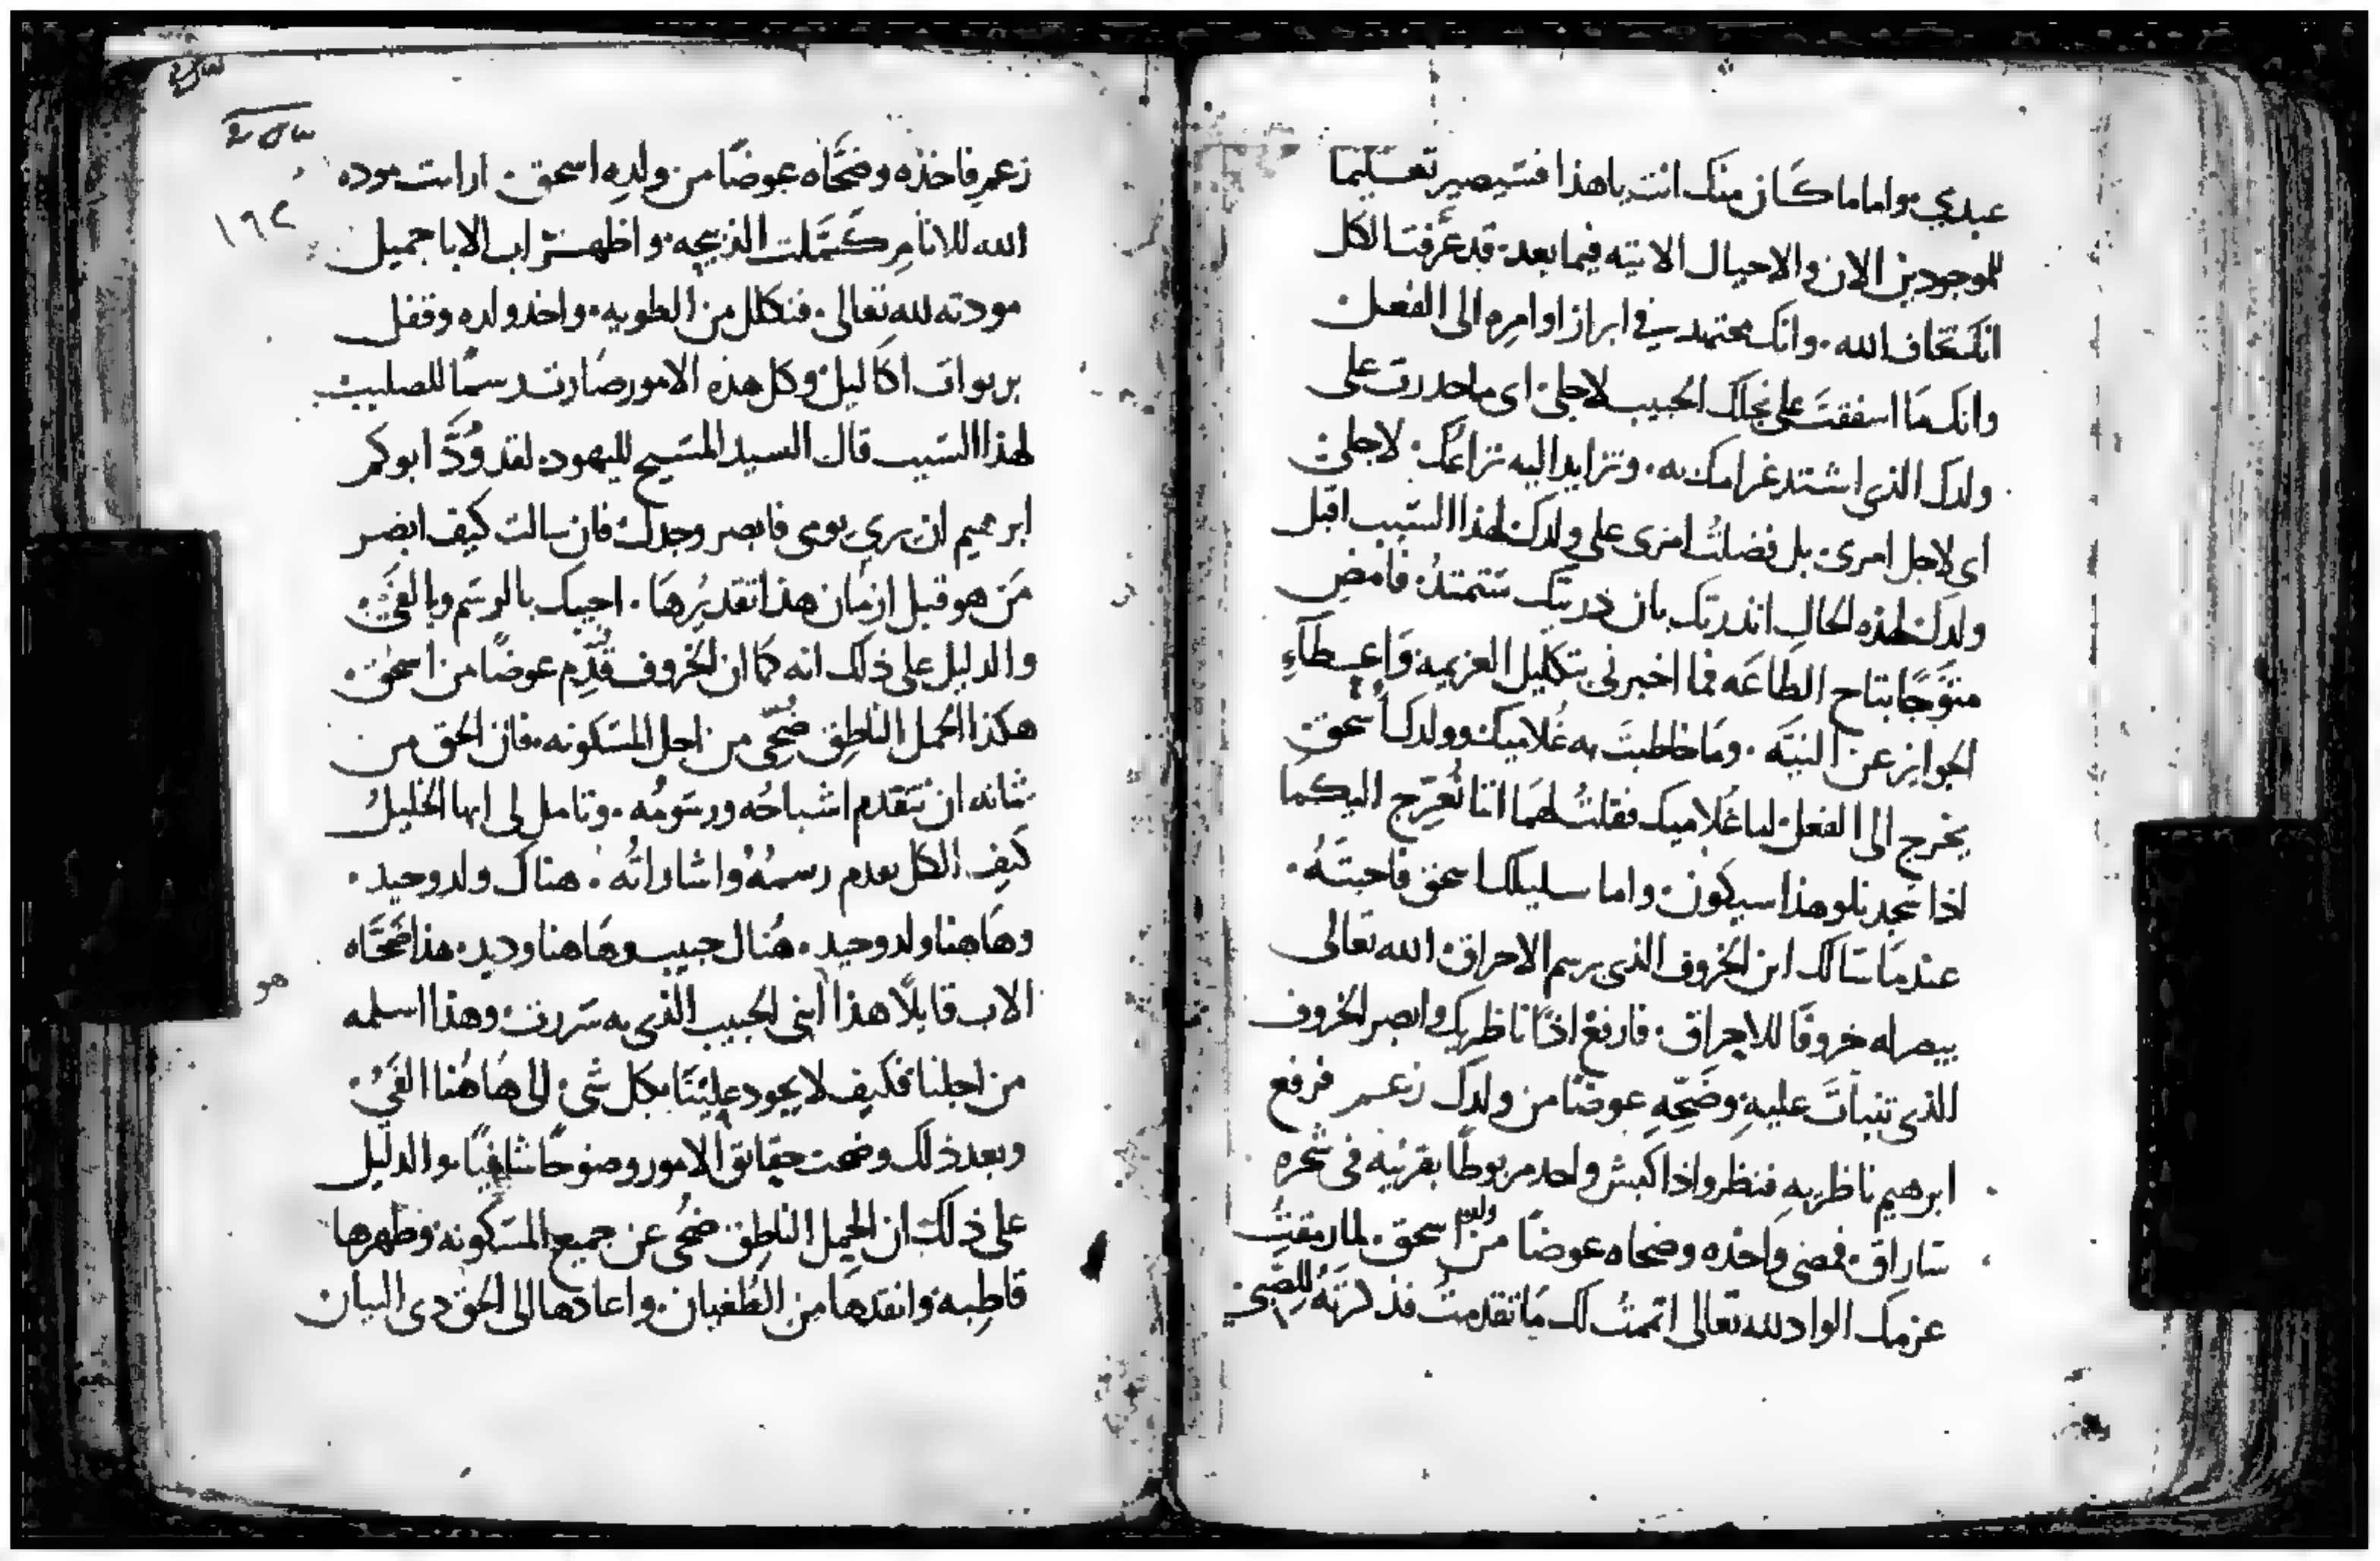 عبدي واما ما كان منك انت يا هذا فسيصير تعليما
للموجودين الان والاجيال الاتيه فيما بعد. قد عرفت الكل
انك تخاف الله. وانك مجتهد في ابراز اوامره الى الفعل
وانك ما اشفقت على نجلك الحبيب لاجلي. اى ما حدرت على
ولدك الذي اشتد غرامك به. وتزايد اليه نزاعك. لاجلي
اى لاجل امرى. بل فضلت امرى على ولدك لهذا السبب اقبل
ولدك لهذه الحال انذرتك بان ذريتك ستمتد. فامض
متوجا بتاج الطاعه فما اخبرنى بتكليل العزيمه واعطاء
الجوايز عن النيه. وما خاطبت به غلاميك وولدك اسحق
يخرج الى الفعل لما غلاميك فقلت لهما اننا نعرج اليكما
اذا سجدنا وهذا سيكون واما سليلك اسحق فاجبته.
عندما سالك اين الخروف الذى برسم الاحراق الله تعالى
يبصر له خروفا للاحراق. فارفع اذا ناظريك وابصر الخروف
الذى تنبات عليه وضحه عوضا من ولدك زعم فرفع
ابرهيم ناظريه فنظر واذا كبش واحد مربوطا بقرنيه في شجره
ساراق. فمضى واخذه وضحاه عوضا من ولده اسحق. لما رمقت
عزمك الواد لله تعالى اتممت لك ما تقدمت فذكرته للصبي
١٩٢
زعم فاخذه وضحاه عوضا من ولده اسحق. ارايت موده
الله للانام كملت الذبيحه. واظهر اب الابا جميل
مودته لله تعالى. فتكلل من الطويه. واخذ ولده وقفل
بربوات اكاليل وكل هذه الامور صارت رسما للصليب
لهذا السبب قال السيد المسيح لليهود. لقد ود ابوكم
ابرهيم ان يرى يومى فابصر وجدل فان سالت كيف ابصر
من هو قبل ازمان هذا تقديرها. اجيبك بالرسم وبالفي
والدليل على ذلك انه كما ان الخروف قدم عوضا من اسحق
هكذا الحمل الناطق ضحى من اجل المسكونه. فان الحق من
شانه ان تتقدم اشباحه ورسومه. وتامل لى ايها الخليل
كيف الكل تقدم رسمه واشاراته. هناك ولد وحيد.
وهاهنا ولد وحيد. هناك حبيب وهاهنا وديد. هذا ضحاه
الاب قايلا هذا هو ابني الحبيب الذى به سررت وهذا اسلمه
من اجلنا فكيف لا يجود علينا بكل شى الى هاهنا الفي
وبعد ذلك وضحت حقايق الامور وضوحا شافيا. والدليل
على ذلك ان الحمل الناطق ضحى عن جميع المسكونه وطهرها
قاطبه وانقدها من الطغيان. واعادها الى الحق ذى البيان